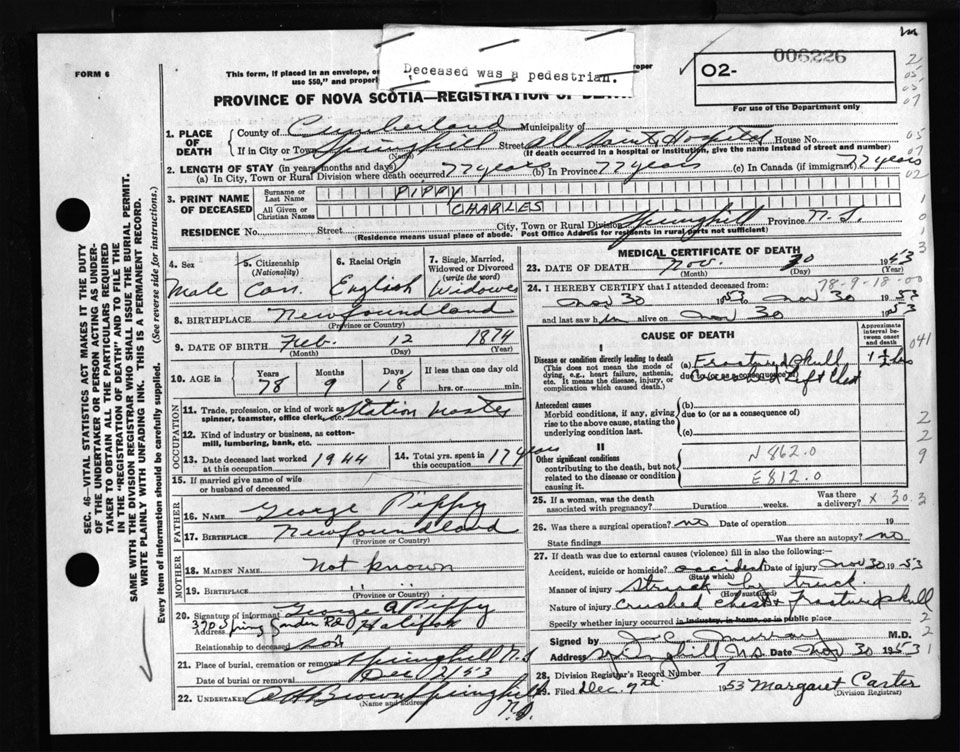 006226
FORM 6
This form, if placed in an envelope, or
use $50," and proper
Deceased was a pedestrian.
02-
For use of the Department only
PROVINCE OF NOVA SCOTIA—REGISTRATION OF DEATH
1. PLACE OF DEATH
County of Cumberland Municipality of
If in City or Town Springhill Street All Saints Hospital House No.
(Name) (If death occurred in a hospital or institution, give the name instead of street and number)
2. LENGTH OF STAY (in years, months and days)
(a) In City, Town or Rural Division where death occurred 77 years (b) In Province 77 years (c) In Canada (if immigrant) 77 years
3. PRINT NAME OF DECEASED
Surname or Last Name PIPPY
All Given or Christian Names CHARLES
RESIDENCE No. Street City, Town or Rural Division Springhill Province N.S.
(Residence means usual place of abode. Post Office Address for residents in rural parts not sufficient)
4. Sex Male
5. Citizenship (Nationality) Can.
6. Racial Origin English
7. Single, Married, Widowed or Divorced (write the word) Widower
8. BIRTHPLACE Newfoundland
(Province or Country)
9. DATE OF BIRTH Feb. 12 1874
(Month) (Day) (Year)
10. AGE in Years 78 Months 9 Days 18 If less than one day old
hrs. or min.
OCCUPATION
11. Trade, profession, or kind of work as spinner, teamster, office clerk, etc. Station Master
12. Kind of industry or business, as cotton-mill, lumbering, bank, etc.
13. Date deceased last worked at this occupation 1944
14. Total yrs. spent in this occupation 17 years
15. If married give name of wife or husband of deceased
FATHER
16. NAME George Pippy
17. BIRTHPLACE Newfoundland
(Province or Country)
MOTHER
18. MAIDEN NAME Not known
19. BIRTHPLACE " "
(Province or Country)
20. Signature of informant George A Pippy
Address 390 Spring Garden Rd Halifax
Relationship to deceased son
21. Place of burial, cremation or removal Springhill N.S
Date of burial or removal Dec 2/53
22. UNDERTAKER A H Brown Springhill N.S.
(Name and address)
MEDICAL CERTIFICATE OF DEATH
23. DATE OF DEATH Nov. 30 1953
(Month) (Day) (Year)
78-9-18-00
24. I HEREBY CERTIFY that I attended deceased from:
Nov 30 1953 to Nov 30 1953
and last saw him alive on Nov 30 1953
CAUSE OF DEATH
Approximate interval between onset and death
I
Disease or condition directly leading to death
(This does not mean the mode of dying, e.g., heart failure, asthenia, etc. It means the disease, injury, or complication which caused death.)
(a) Fractured skull
due to (or as a consequence of) Left Chest
Antecedent causes
Morbid conditions, if any, giving rise to the above cause, stating the underlying condition last.
(b)
due to (or as a consequence of)
(c)
II
Other significant conditions contributing to the death, but not related to the disease or condition causing it.
N 862.0
E 812.0
25. If a woman, was the death associated with pregnancy? Duration weeks. Was there a delivery? x 30.3
26. Was there a surgical operation? no Date of operation 19
State findings Was there an autopsy? no
27. If death was due to external causes (violence) fill in also the following:—
Accident, suicide or homicide? accident Date of injury Nov 30 1953
(State which)
Manner of injury Struck by truck
(How sustained)
Nature of injury Crushed chest & fractured skull
Specify whether injury occurred in industry, in home, or in public place
Signed by J. C. Murray M.D.
Address Springhill N.S. Date Nov 30 1953
28. Division Registrar's Record Number 7
29. Filed Dec 7th. 1953 Margaret Carter
(Division Registrar)
SEC. 46—VITAL STATISTICS ACT MAKES IT THE DUTY
OF THE UNDERTAKER OR PERSON ACTING AS UNDER-
TAKER TO OBTAIN ALL THE PARTICULARS REQUIRED
IN THE "REGISTRATION OF DEATH" AND TO FILE THE
SAME WITH THE DIVISION REGISTRAR WHO SHALL ISSUE THE BURIAL PERMIT.
WRITE PLAINLY WITH UNFADING INK. THIS IS A PERMANENT RECORD.
Every item of information should be carefully supplied. (See reverse side for instructions.)